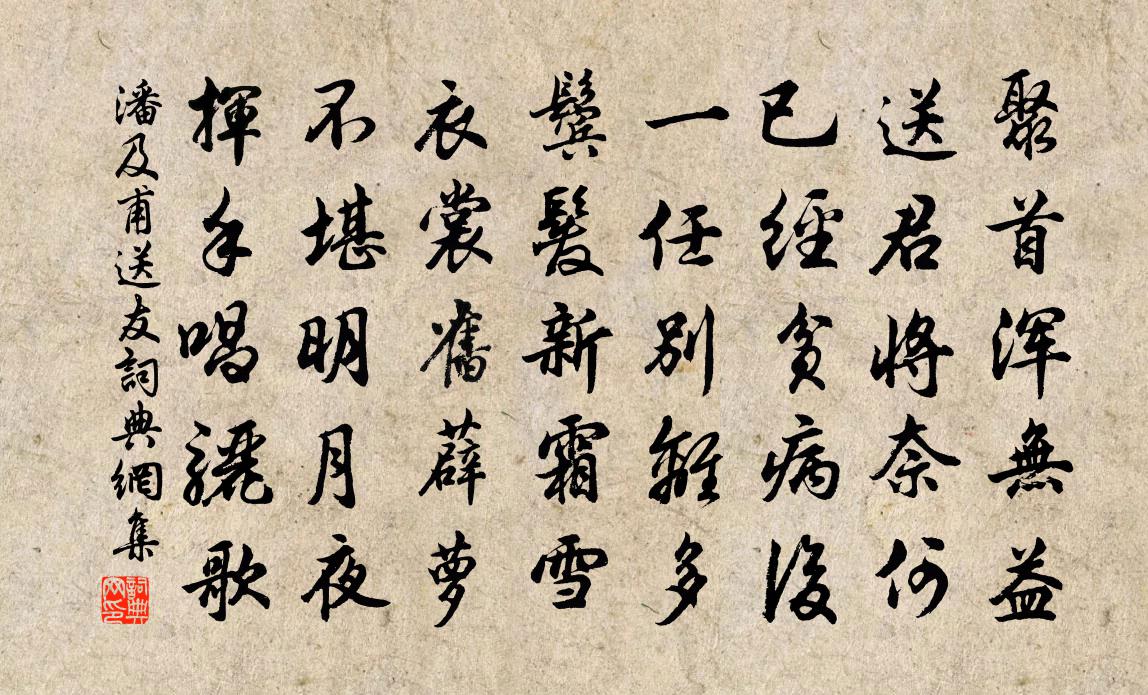 聚首渾無益
送君將奈何
已經貧病後
一任別離多
鬢髮新霜雪
衣裳舊薜蘿
不堪明月夜
揮手唱驪歌
潘及甫送友詞典網集
詞典網印